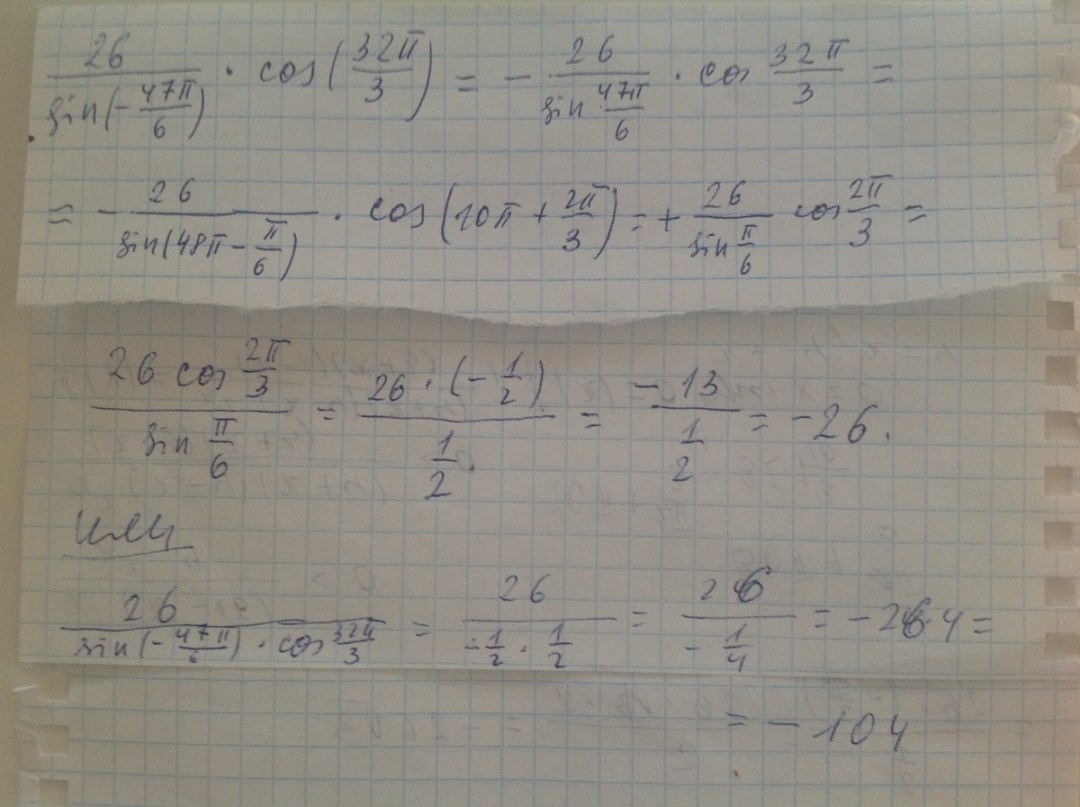 26/sin(-47π/6) · cos(32π/3) = - 26/sin 47π/6 · cos 32π/3 =
= - 26/sin(48π - π/6) · cos(10π + 2π/3) = + 26/sin π/6 cos 2π/3 =
26 cos 2π/3 / sin π/6 = 26 · (-1/2) / 1/2 = -13 / 1/2 = -26.
или
26 / sin(-47π/6) · cos 32π/3 = 26 / -1/2 · 1/2 = 26 / -1/4 = -26·4 =
= - 104